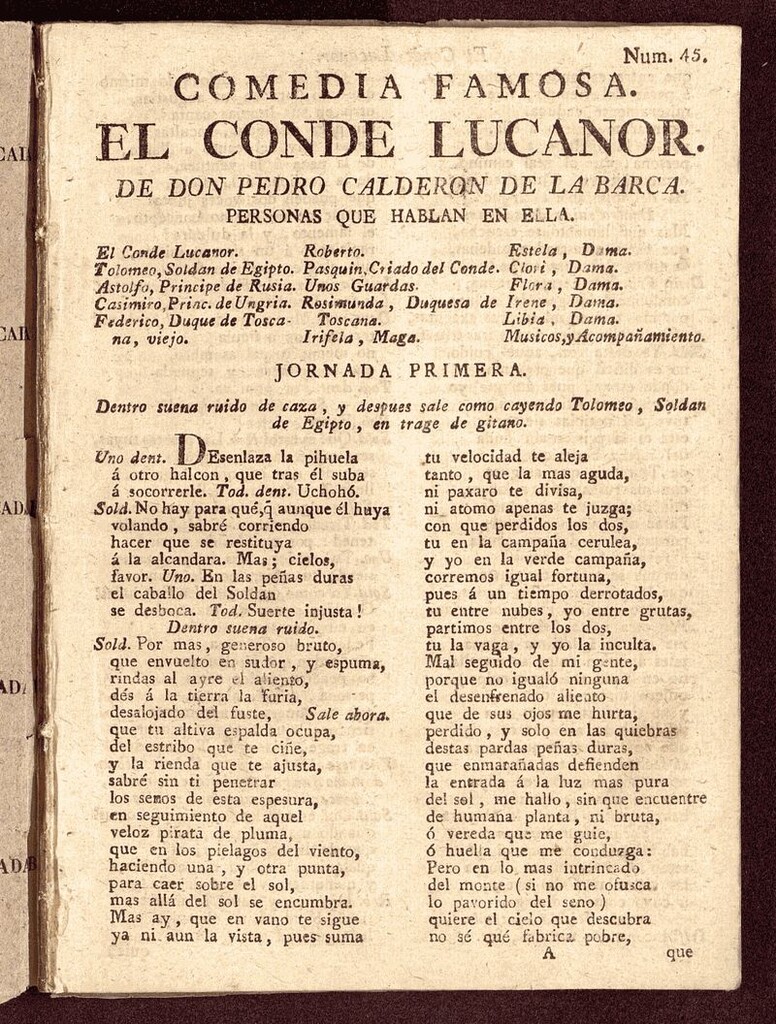 Num. 45.
COMEDIA FAMOSA.
EL CONDE LUCANOR.
DE DON PEDRO CALDERON DE LA BARCA.
PERSONAS QUE HABLAN EN ELLA.
El Conde Lucanor.
Tolomeo, Soldan de Egipto.
Astolfo, Principe de Rusia.
Casimiro, Princ. de Ungria.
Federico, Duque de Tosca-
na, viejo.
Roberto.
Pasquin, Criado del Conde.
Unos Guardas.
Rosimunda, Duquesa de
Toscana.
Irifela, Maga.
Estela, Dama.
Clori, Dama.
Flora, Dama.
Irene, Dama.
Libia, Dama.
Musicos, y Acompañamiento.
JORNADA PRIMERA.
Dentro suena ruido de caza, y despues sale como cayendo Tolomeo, Soldan
de Egipto, en trage de gitano.
Uno dent. DEsenlaza la pihuela
á otro halcon, que tras él suba
á socorrerle. Tod. dent. Uchohó.
Sold. No hay para qué, q̃ aunque él huya
volando, sabré corriendo
hacer que se restituya
á la alcandara. Mas; cielos,
favor. Uno. En las peñas duras
el caballo del Soldan
se desboca. Tod. Suerte injusta!
Dentro suena ruido.
Sold. Por mas, generoso bruto,
que envuelto en sudor, y espuma,
rindas al ayre el aliento,
dés á la tierra la furia,
desalojado del fuste, Sale ahora.
que tu altiva espalda ocupa,
del estribo que te ciñe,
y la rienda que te ajusta,
sabré sin ti penetrar
los senos de esta espesura,
en seguimiento de aquel
veloz pirata de pluma,
que en los pielagos del viento,
haciendo una, y otra punta,
para caer sobre el sol,
mas allá del sol se encumbra.
Mas ay, que en vano te sigue
ya ni aun la vista, pues suma
tu velocidad te aleja
tanto, que la mas aguda,
ni paxaro te divisa,
ni atomo apenas te juzga;
con que perdidos los dos,
tu en la campaña cerulea,
y yo en la verde campaña,
corremos igual fortuna,
pues á un tiempo derrotados,
tu entre nubes, yo entre grutas,
partimos entre los dos,
tu la vaga, y yo la inculta.
Mal seguido de mi gente,
porque no igualó ninguna
el desenfrenado aliento
que de sus ojos me hurta,
perdido, y solo en las quiebras
destas pardas peñas duras,
que enmarañadas defienden
la entrada á la luz mas pura
del sol, me hallo, sin que encuentre
de humana planta, ni bruta,
ó vereda que me guie,
ó huella que me conduzga:
Pero en lo mas intrincado
del monte (si no me ofusca
lo pavorido del seno)
quiere el cielo que descubra
no sé qué fabrica pobre,
A
que